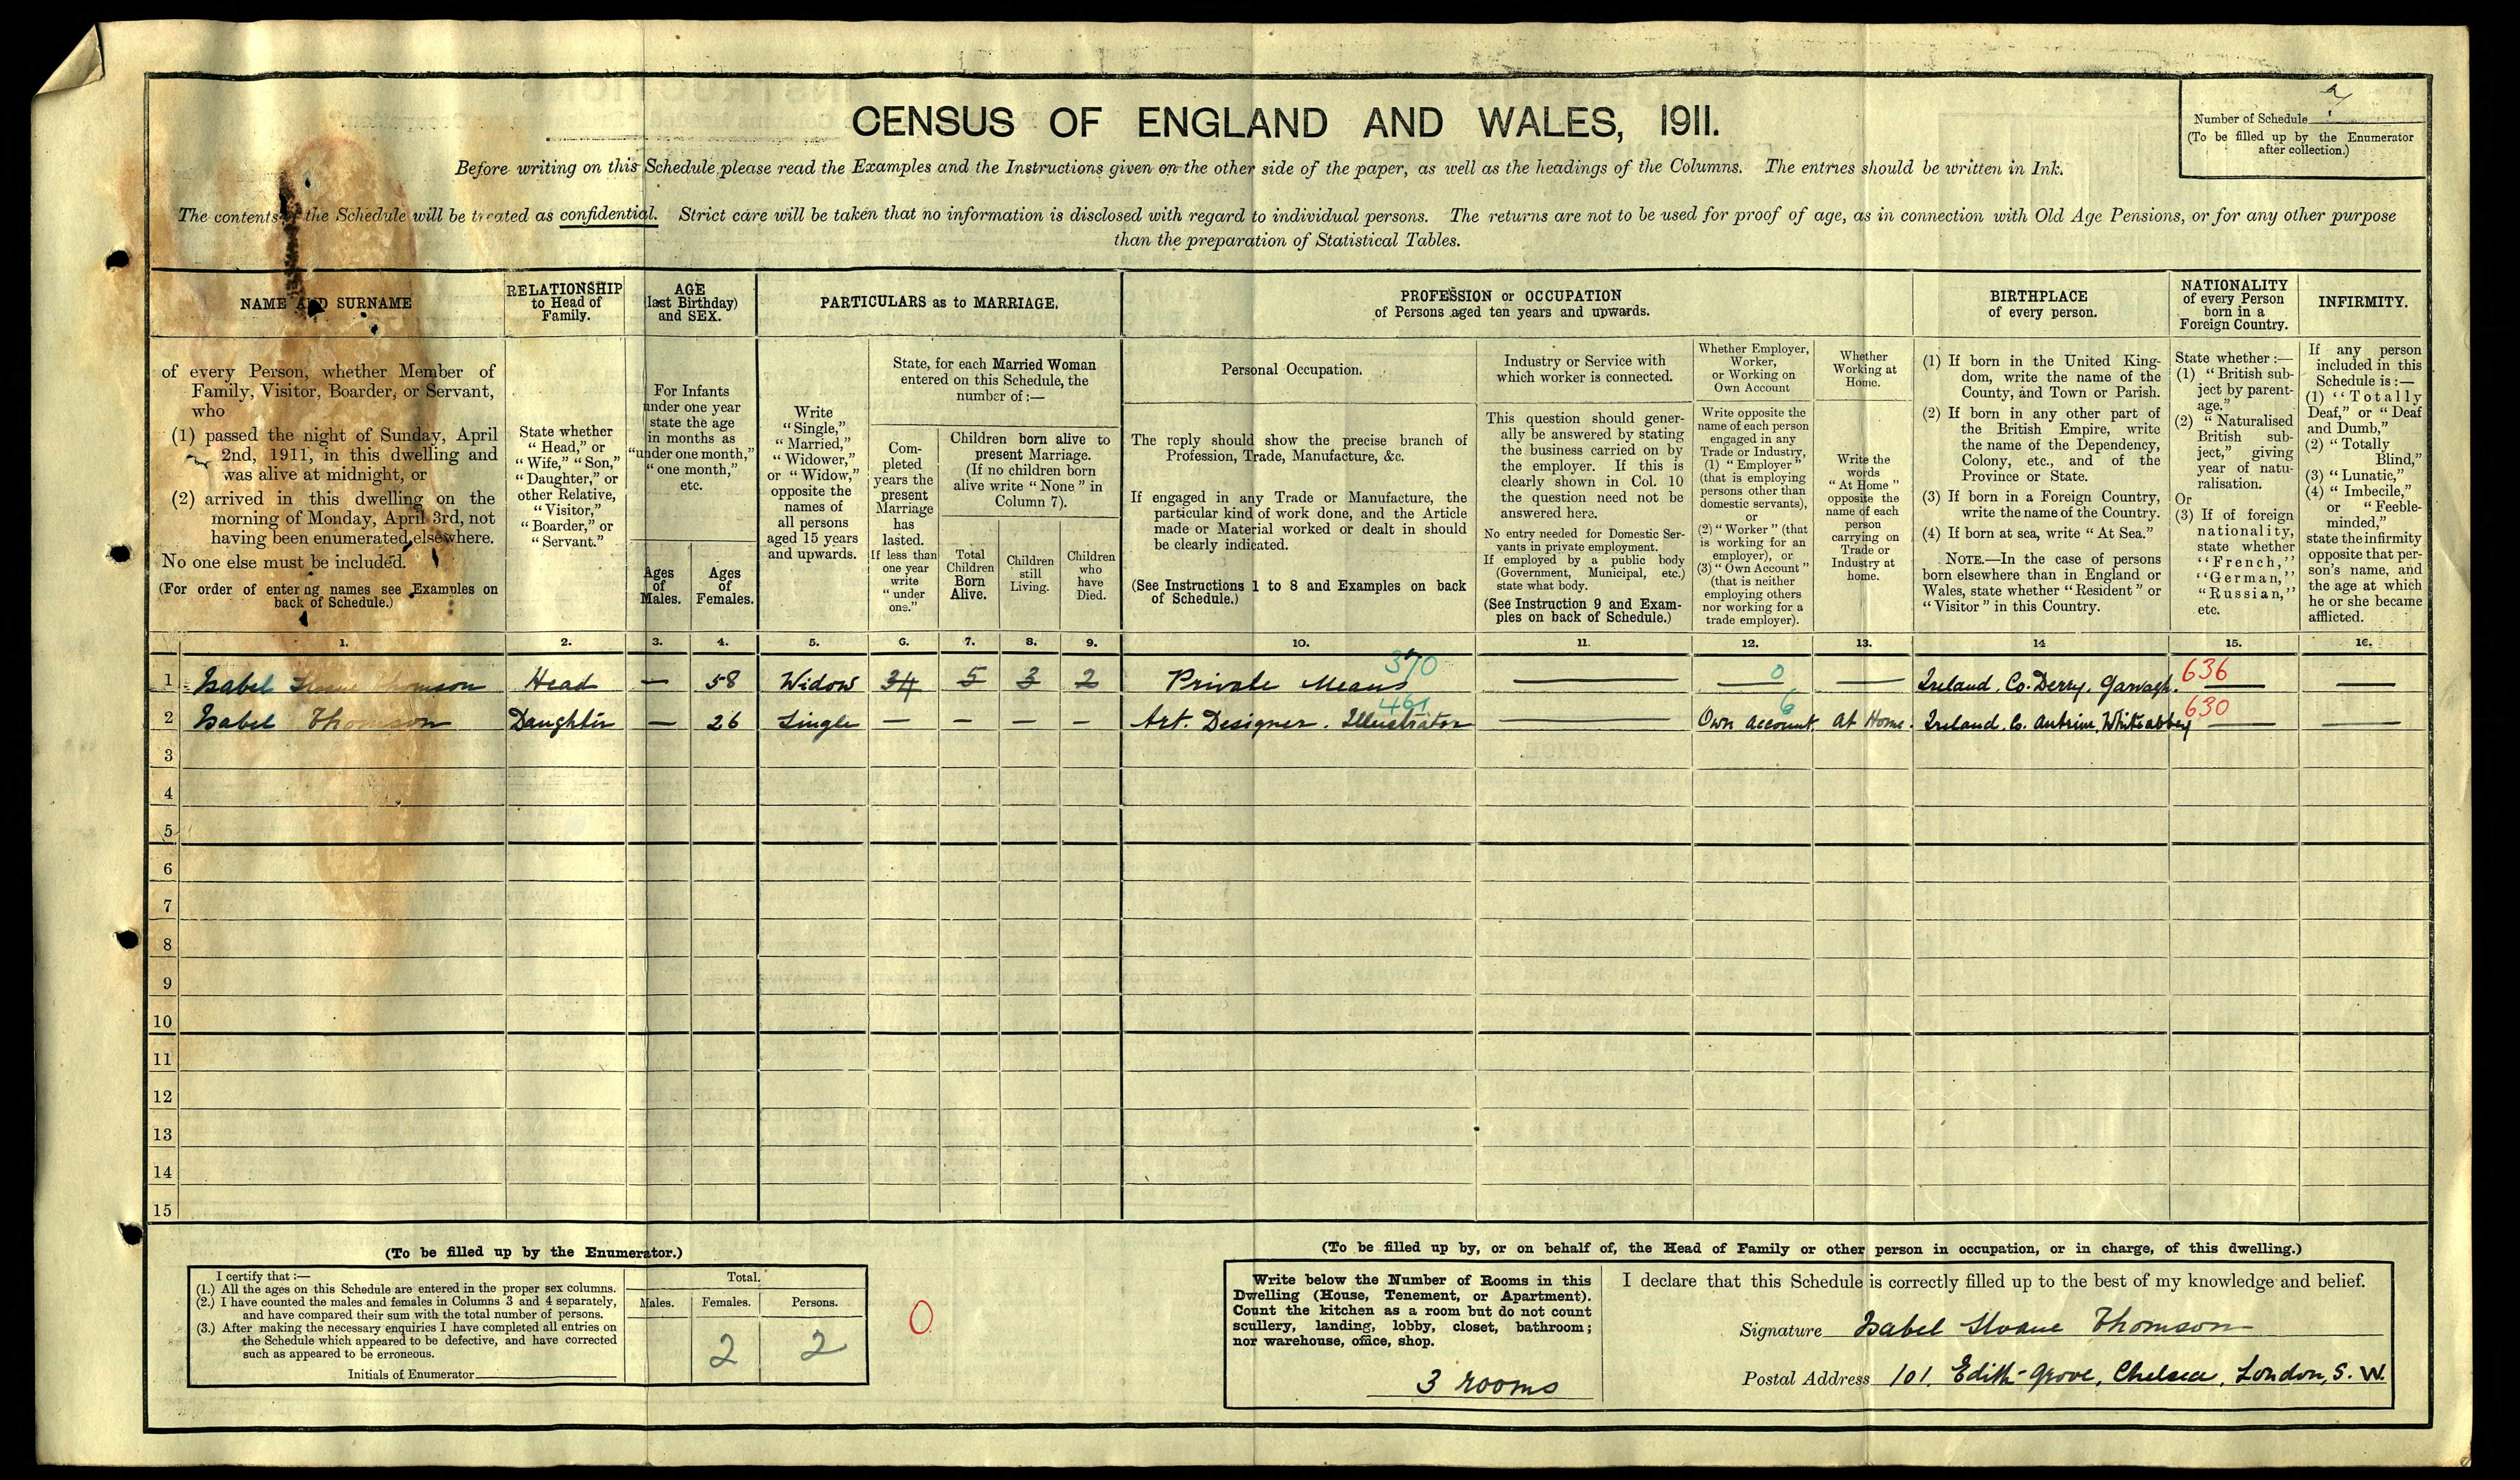 CENSUS OF ENGLAND AND WALES, 1911.
Number of Schedule 2
(To be filled up by the Enumerator
after collection.)
Before writing on this Schedule please read the Examples and the Instructions given on the other side of the paper, as well as the headings of the Columns. The entries should be written in Ink.
The contents of the Schedule will be treated as confidential. Strict care will be taken that no information is disclosed with regard to individual persons. The returns are not to be used for proof of age, as in connection with Old Age Pensions, or for any other purpose
than the preparation of Statistical Tables.
NAME AND SURNAME
of every Person, whether Member of
Family, Visitor, Boarder, or Servant,
who
(1) passed the night of Sunday, April
2nd, 1911, in this dwelling and
was alive at midnight, or
(2) arrived in this dwelling on the
morning of Monday, April 3rd, not
having been enumerated elsewhere.
No one else must be included.
(For order of entering names see Examples on
back of Schedule.)
RELATIONSHIP
to Head of
Family.
State whether
"Head," or
"Wife," "Son,"
"Daughter," or
other Relative,
"Visitor,"
"Boarder," or
"Servant."
AGE
(last Birthday)
and SEX.
For Infants
under one year
state the age
in months as
"under one month,"
"one month,"
etc.
Ages
of
Males.
Ages
of
Females.
PARTICULARS as to MARRIAGE.
Write
"Single,"
"Married,"
"Widower,"
or "Widow,"
opposite the
names of
all persons
aged 15 years
and upwards.
State, for each Married Woman
entered on this Schedule, the
number of :—
Com-
pleted
years the
present
Marriage
has
lasted.
If less than
one year
write
"under
one."
Children born alive to
present Marriage.
(If no children born
alive write "None" in
Column 7).
Total
Children
Born
Alive.
Children
still
Living.
Children
who
have
Died.
PROFESSION or OCCUPATION
of Persons aged ten years and upwards.
Personal Occupation.
The reply should show the precise branch of
Profession, Trade, Manufacture, &c.
If engaged in any Trade or Manufacture, the
particular kind of work done, and the Article
made or Material worked or dealt in should
be clearly indicated.
(See Instructions 1 to 8 and Examples on back
of Schedule.)
Industry or Service with
which worker is connected.
This question should gener-
ally be answered by stating
the business carried on by
the employer. If this is
clearly shown in Col. 10
the question need not be
answered here.
No entry needed for Domestic Ser-
vants in private employment.
If employed by a public body
(Government, Municipal, etc.)
state what body.
(See Instruction 9 and Exam-
ples on back of Schedule.)
Whether Employer,
Worker,
or Working on
Own Account
Write opposite the
name of each person
engaged in any
Trade or Industry,
(1) "Employer"
(that is employing
persons other than
domestic servants),
or
(2) "Worker" (that
is working for an
employer), or
(3) "Own Account"
(that is neither
employing others
nor working for a
trade employer).
Whether
Working at
Home.
Write the
words
"At Home"
opposite the
name of each
person
carrying on
Trade or
Industry at
home.
BIRTHPLACE
of every person.
(1) If born in the United King-
dom, write the name of the
County, and Town or Parish.
(2) If born in any other part of
the British Empire, write
the name of the Dependency,
Colony, etc., and of the
Province or State.
(3) If born in a Foreign Country,
write the name of the Country.
(4) If born at sea, write "At Sea."
NOTE.—In the case of persons
born elsewhere than in England or
Wales, state whether "Resident" or
"Visitor" in this Country.
NATIONALITY
of every Person
born in a
Foreign Country.
State whether :—
(1) "British sub-
ject by parent-
age."
(2) "Naturalised
British sub-
ject," giving
year of natu-
ralisation.
Or
(3) If of foreign
nationality,
state whether
"French,"
"German,"
"Russian,"
etc.
INFIRMITY.
If any person
included in this
Schedule is :—
(1) "Totally
Deaf," or "Deaf
and Dumb,"
(2) "Totally
Blind,"
(3) "Lunatic,"
(4) "Imbecile,"
or "Feeble-
minded,"
state the infirmity
opposite that per-
son's name, and
the age at which
he or she became
afflicted.
1. 2. 3. 4. 5. 6. 7. 8. 9. 10. 11. 12. 13. 14 15. 16.
1 Isabel Sloane Thomson Head — 58 Widow 34 5 3 2 Private Means 370 — 0 — — Ireland. Co. Derry. Garvagh. 636 — —
2 Isabel Thomson Daughter — 26 Single — — — — Art. Designer. Illustrator 461 — Own Account. 6 At Home. Ireland. Co. Antrim, Whiteabbey 630 — —
3
4
5
6
7
8
9
10
11
12
13
14
15
(To be filled up by the Enumerator.)
I certify that :—
(1.) All the ages on this Schedule are entered in the proper sex columns.
(2.) I have counted the males and females in Columns 3 and 4 separately,
and have compared their sum with the total number of persons.
(3.) After making the necessary enquiries I have completed all entries on
the Schedule which appeared to be defective, and have corrected
such as appeared to be erroneous.
Initials of Enumerator
Total.
Males. Females. Persons.
2 2
0
(To be filled up by, or on behalf of, the Head of Family or other person in occupation, or in charge, of this dwelling.)
Write below the Number of Rooms in this
Dwelling (House, Tenement, or Apartment).
Count the kitchen as a room but do not count
scullery, landing, lobby, closet, bathroom;
nor warehouse, office, shop.
3 rooms
I declare that this Schedule is correctly filled up to the best of my knowledge and belief.
Signature Isabel Sloane Thomson
Postal Address 101, Edith Grove, Chelsea, London, S.W.